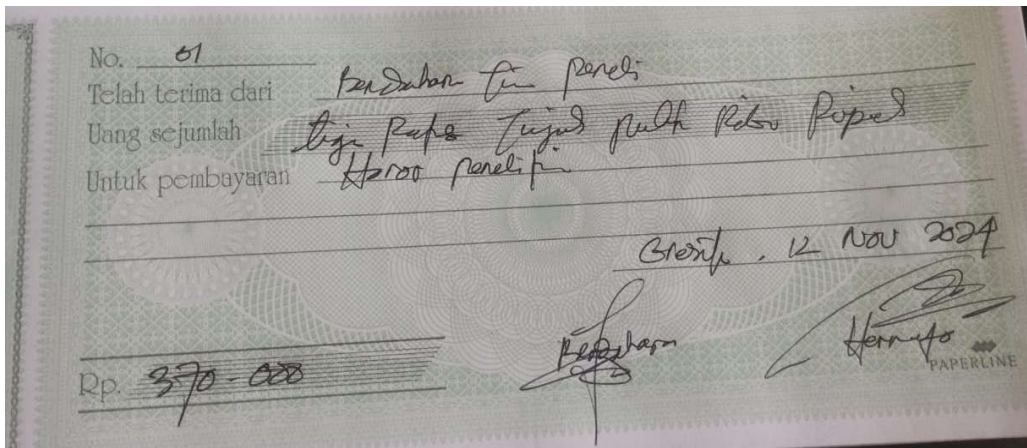 No. 01
Telah terima dari Bendahara tim peneli
Uang sejumlah tiga Ratus Tujuh puluh Ribu Rupiah
Untuk pembayaran Honor peneliti
Gresik, 12 Nov 2024
Bendahara
Hernanto
PAPERLINE
Rp. 370-000